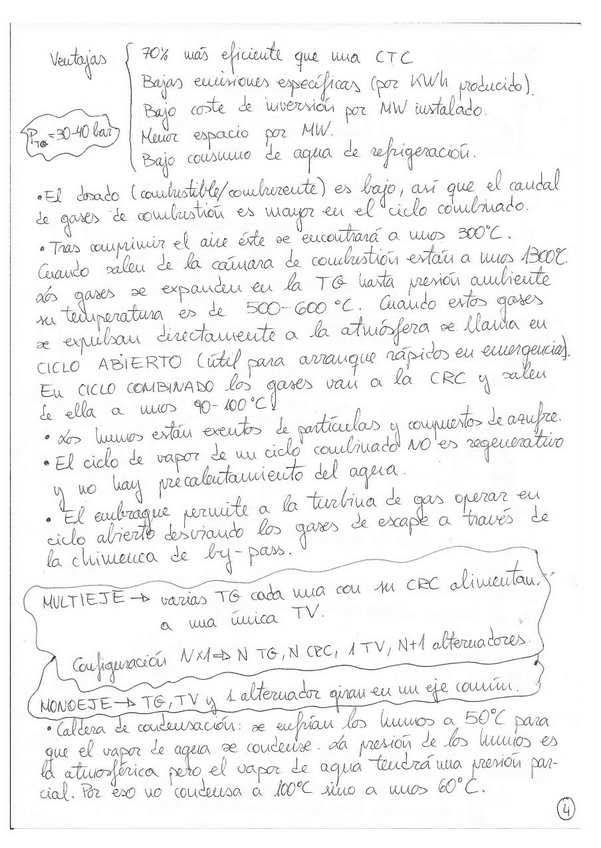 Ventajas { 70% más eficiente que una CTC
Bajas emisiones específicas (por KWh producido).
Bajo coste de inversión por MW instalado.
P_TG = 30-40 bar
Menor espacio por MW.
Bajo consumo de agua de refrigeración.
• El dosado (combustible/comburente) es bajo, así que el caudal
de gases de combustión es mayor en el ciclo combinado.
• Tras comprimir el aire éste se encontrará a unos 300°C.
Cuando salen de la cámara de combustión están a unos 1300°C
Los gases se expanden en la TG hasta presión ambiente
su temperatura es de 500-600 °C. Cuando estos gases
se expulsan directamente a la atmósfera se llama en
CICLO ABIERTO (útil para arranque rápidos en emergencias).
En CICLO COMBINADO los gases van a la CRC y salen
de ella a unos 90-100°C.
• Los humos están exentos de partículas y compuestos de azufre.
• El ciclo de vapor de un ciclo combinado NO es regenerativo
y no hay precalentamiento del agua.
• El embrague permite a la turbina de gas operar en
ciclo abierto desviando los gases de escape a través de
la chimenea de by-pass.
MULTIEJE → varias TG cada una con su CRC alimentan
a una única TV.
Configuración N×1 ⇒ N TG, N CRC, 1 TV, N+1 alternadores.
MONOEJE → TG, TV y 1 alternador giran en un eje común.
• Caldera de condensación: se enfrían los humos a 50°C para
que el vapor de agua se condense. La presión de los humos es
la atmosférica pero el vapor de agua tendrá una presión par-
cial. Por eso no condensa a 100°C sino a unos 60°C.
4